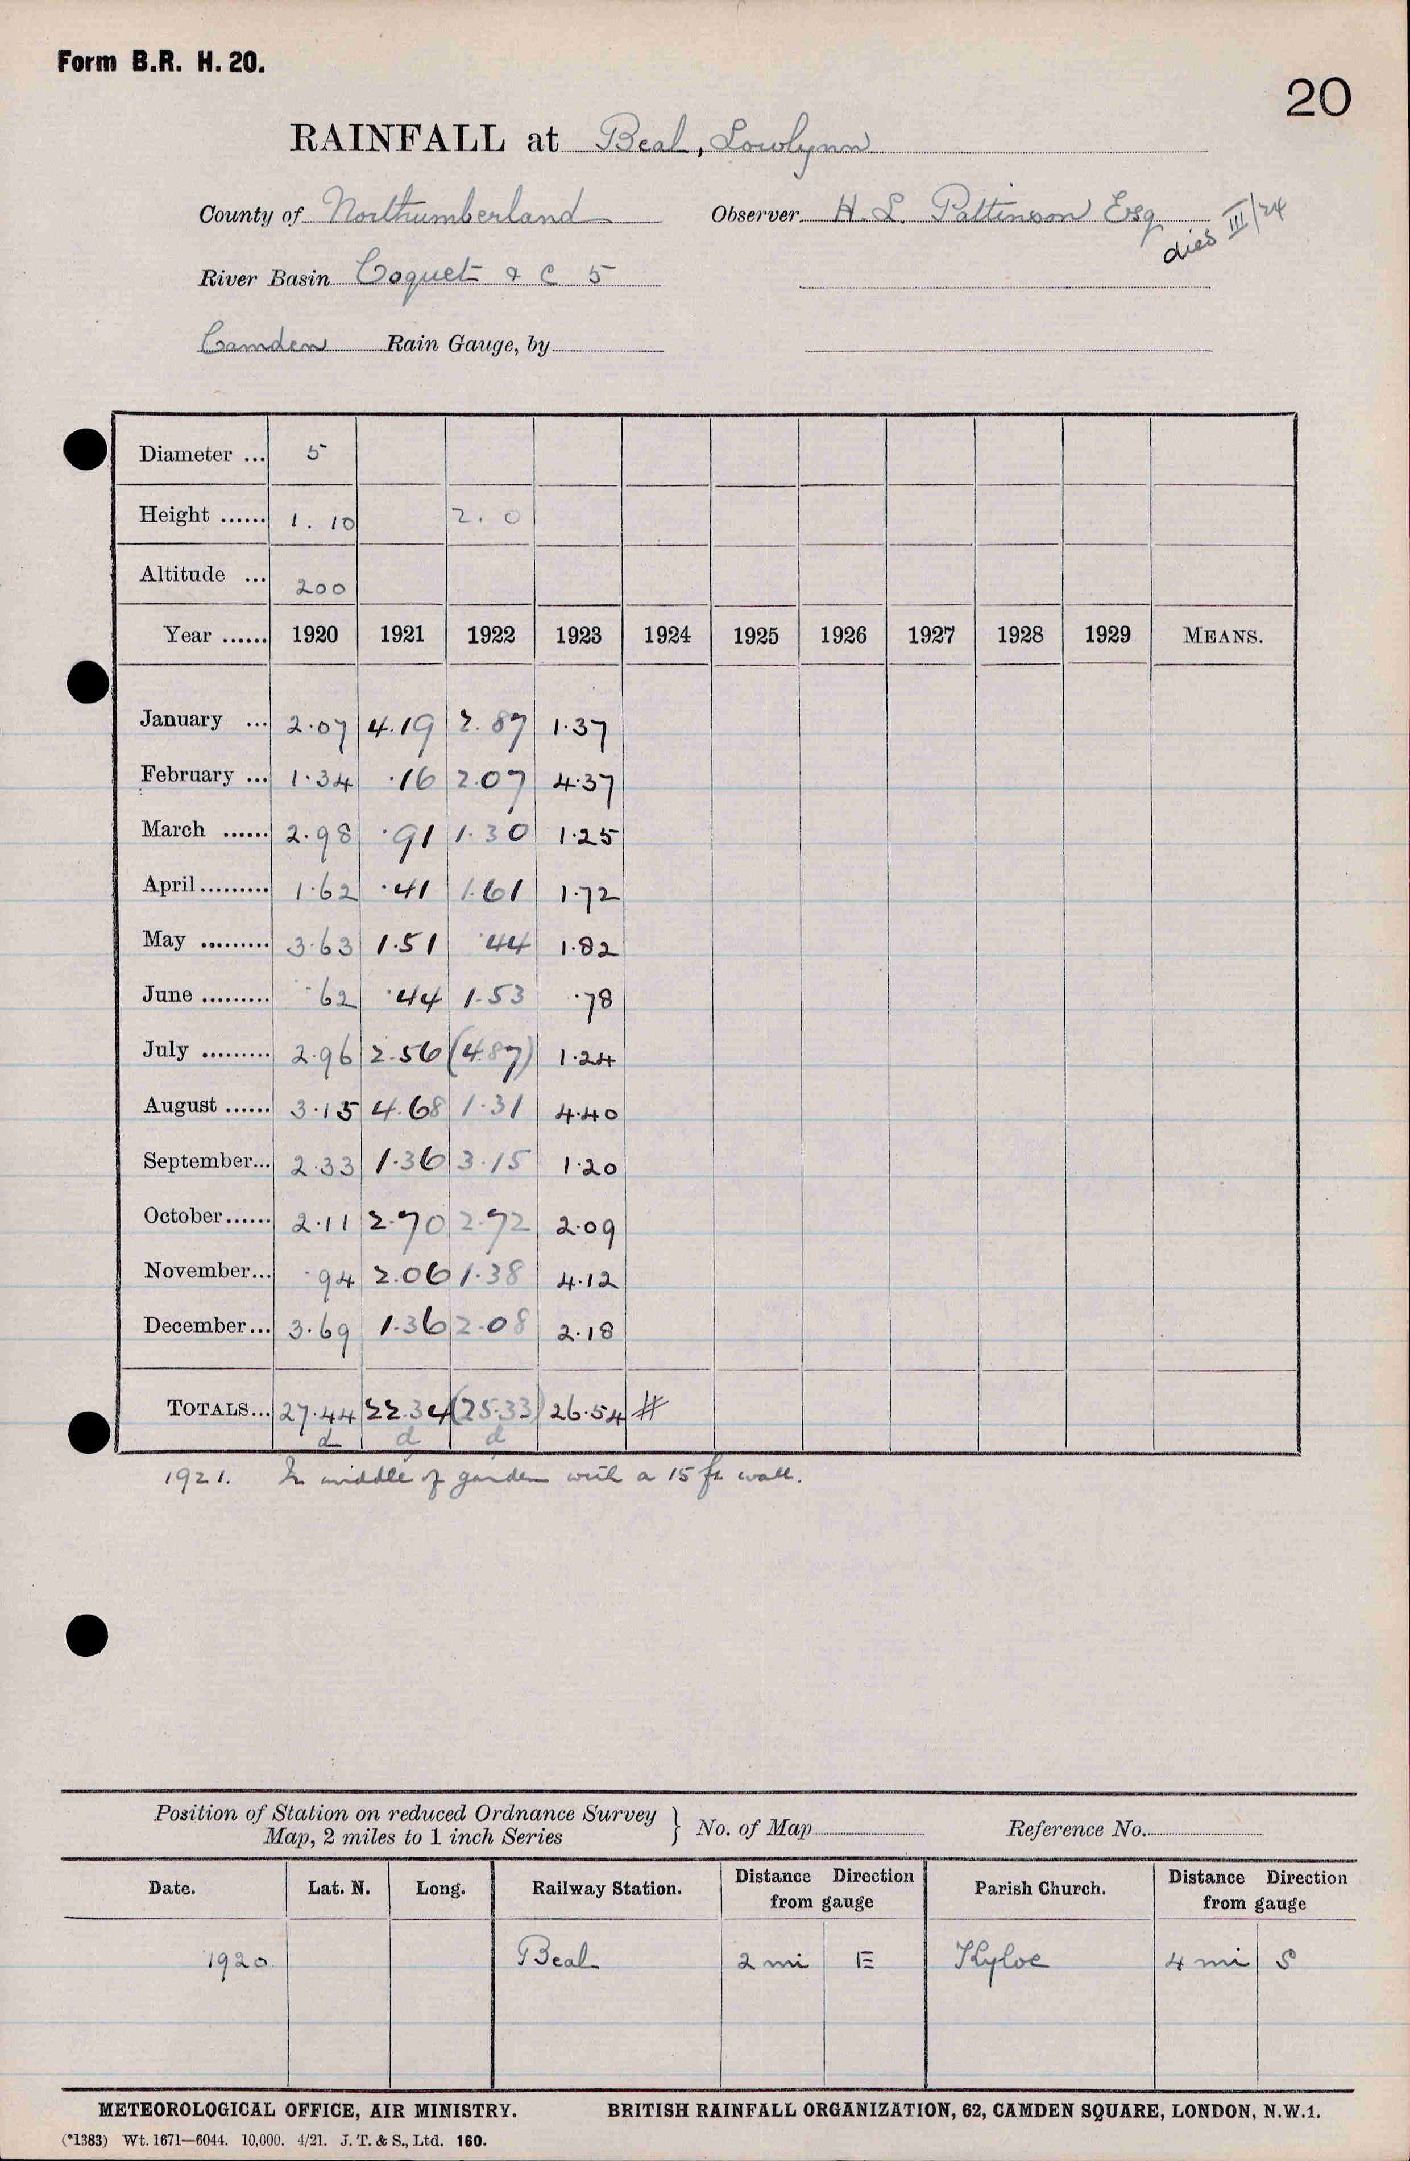 Form B.R. H. 20.
20
RAINFALL at Beal, Lowlynn
County of Northumberland Observer H. L. Pattinson Esq
dies III/24
River Basin Coquet & C 5
Camden Rain Gauge, by
Diameter ... 5
Height ...... 1. 10 2. 0
Altitude ... 200
Year ...... 1920 1921 1922 1923 1924 1925 1926 1927 1928 1929 MEANS.
January ... 2.07 4.19 2.87 1.37
February ... 1.34 .16 2.07 4.37
March ...... 2.98 .91 1.30 1.25
April ......... 1.62 .41 1.61 1.72
May ......... 3.63 1.51 .44 1.82
June ......... .62 .44 1.53 .78
July ......... 2.96 2.56 (4.87) 1.24
August ...... 3.15 4.68 1.31 4.40
September... 2.33 1.36 3.15 1.20
October...... 2.11 2.70 2.72 2.09
November... .94 2.06 1.38 4.12
December... 3.69 1.36 2.08 2.18
TOTALS... 27.44 22.34 (25.33) 26.54 #
d d d
1921. In middle of garden with a 15 ft wall.
Position of Station on reduced Ordnance Survey
Map, 2 miles to 1 inch Series } No. of Map Reference No.
Date. Lat. N. Long. Railway Station. Distance Direction from gauge Parish Church. Distance Direction from gauge
1920 Beal 2 mi E Kyloe 4 mi S
METEOROLOGICAL OFFICE, AIR MINISTRY. BRITISH RAINFALL ORGANIZATION, 62, CAMDEN SQUARE, LONDON, N.W.1.
(*1383) Wt. 1671—6044. 10,000. 4/21. J. T. & S., Ltd. 160.